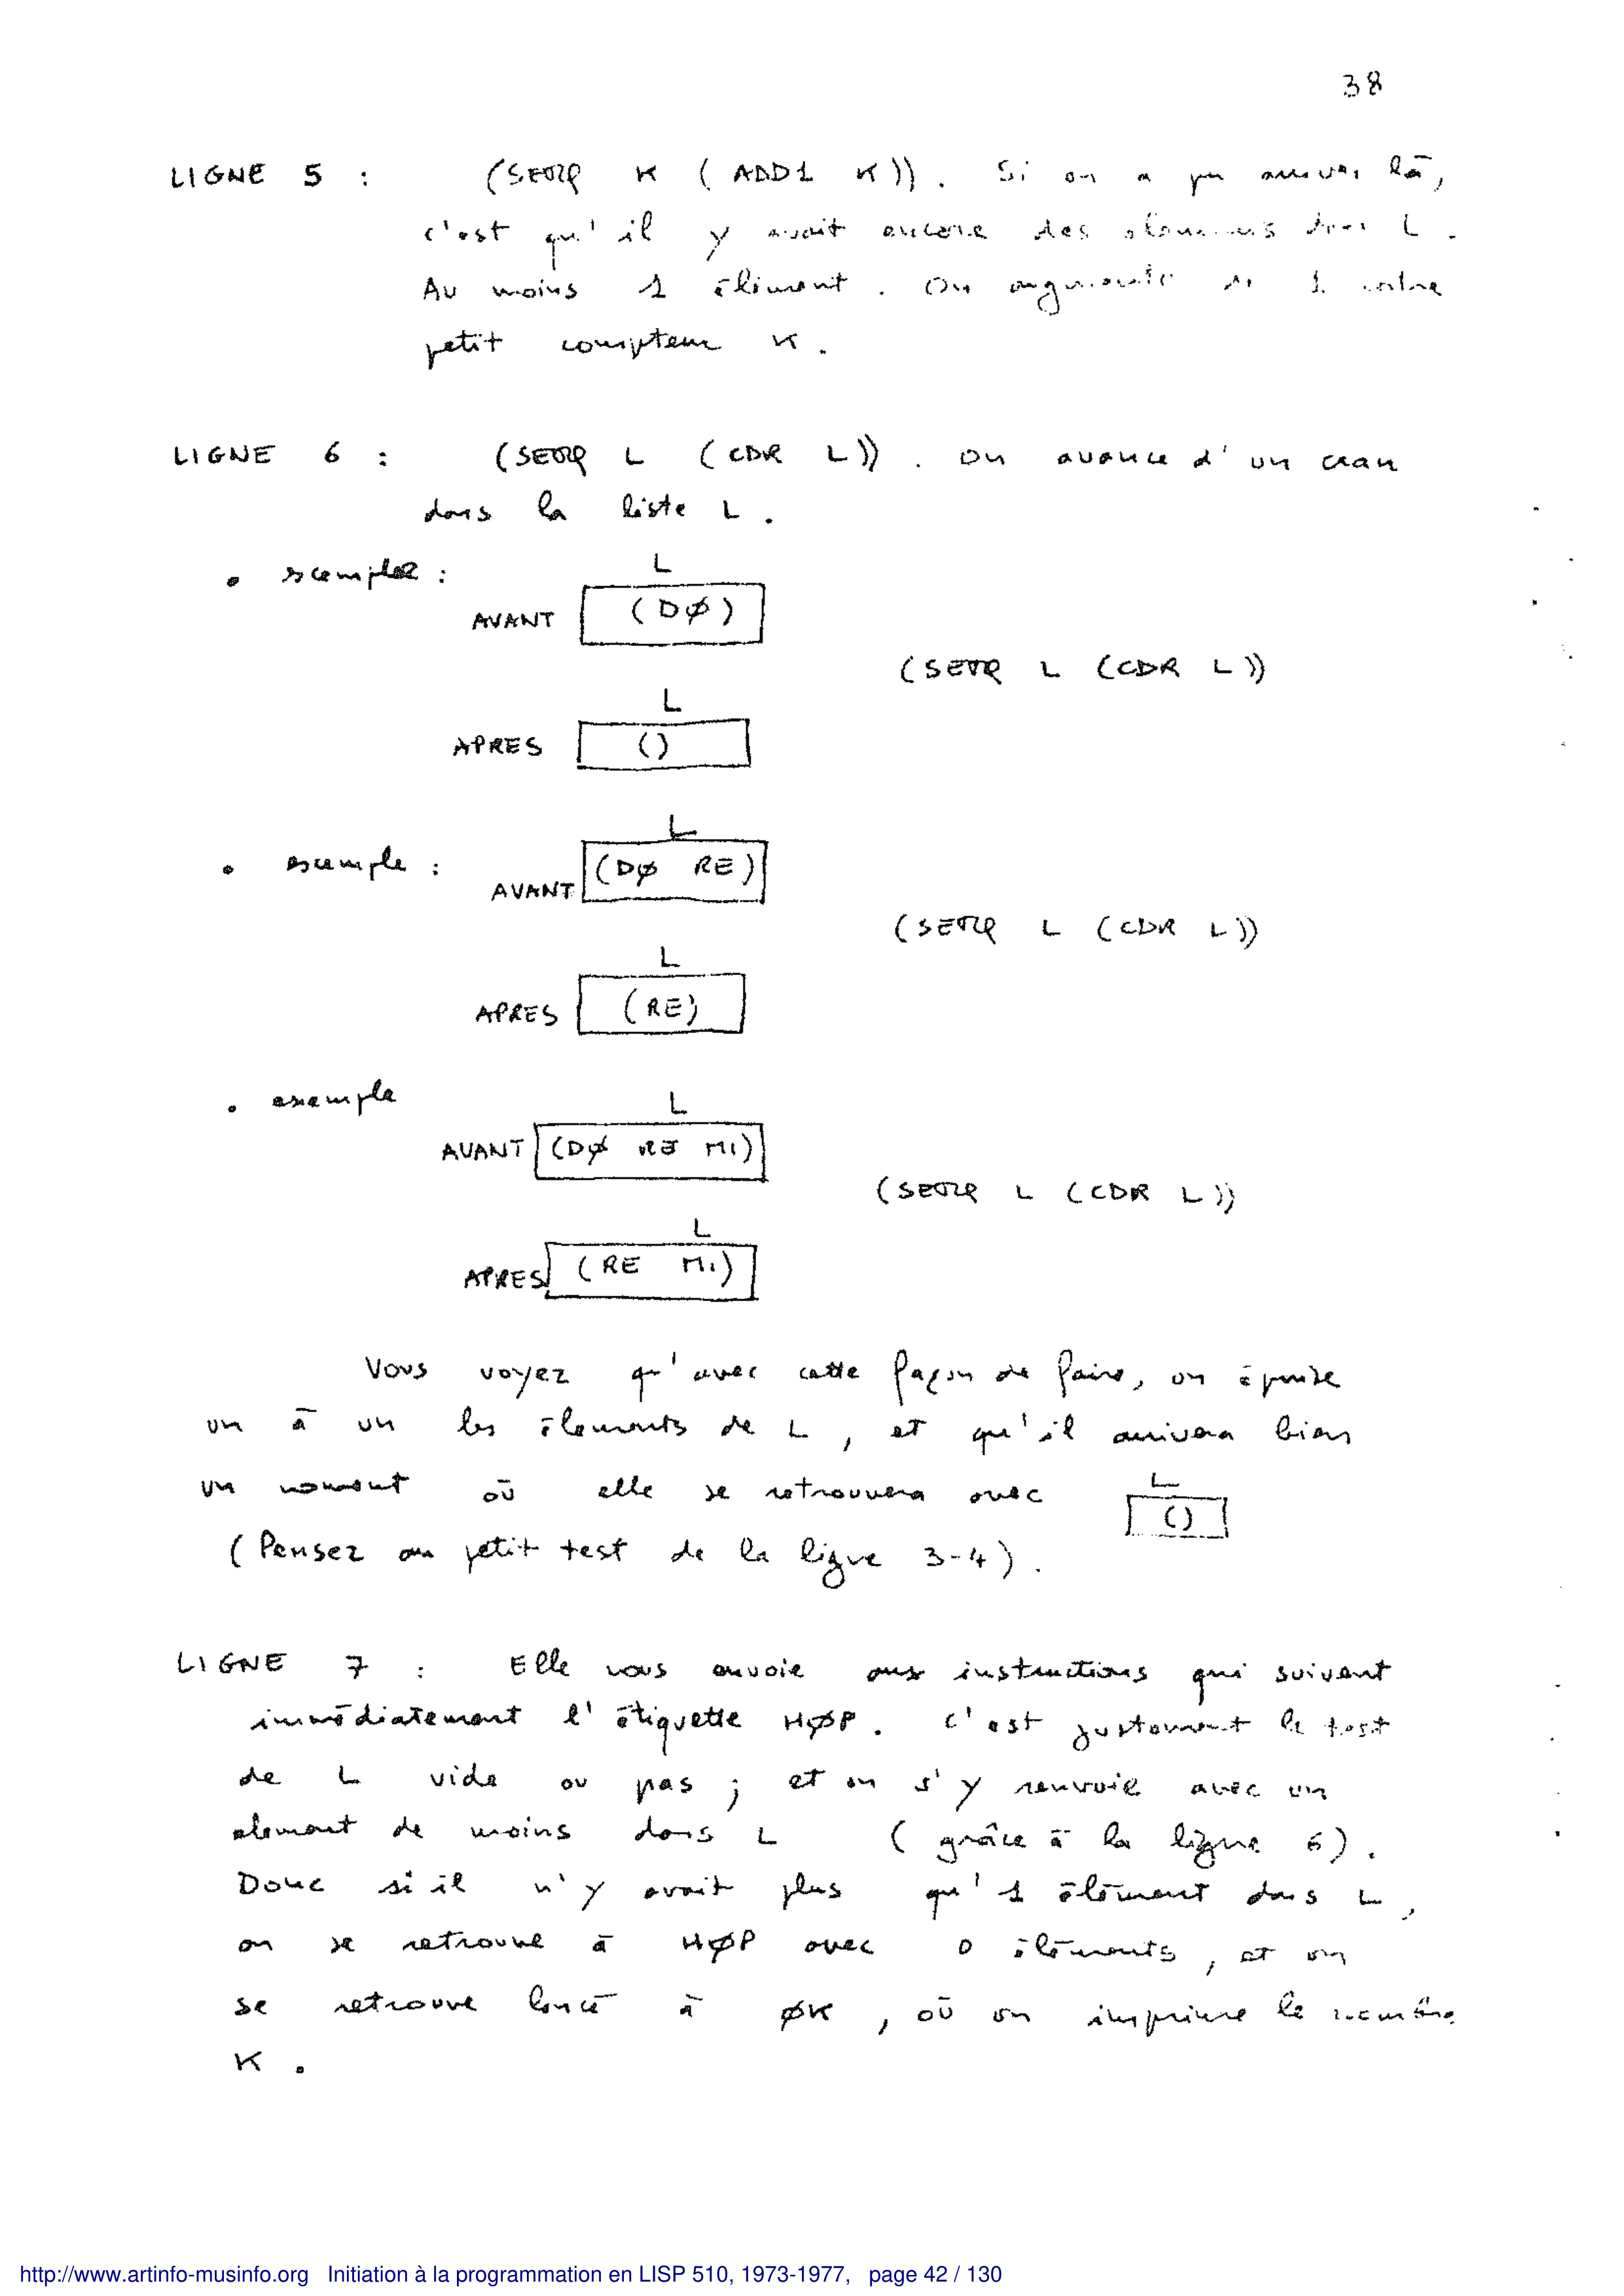 38
LIGNE 5 : (SETQ K (ADD1 K)). Si on a pu arriver là,
c'est qu'il y avait encore des élements dans L.
Au moins 1 élément. On augmente de 1 notre
petit compteur K.
LIGNE 6 : (SETQ L (CDR L)). On avance d'un cran
dans la liste L.
• exemple :
L
AVANT (DØ)
(SETQ L (CDR L))
L
APRES ()
L
• exemple : AVANT (DØ RE)
(SETQ L (CDR L))
L
APRES (RE)
• exemple
L
AVANT (DØ RE MI)
(SETQ L (CDR L))
L
APRES (RE MI)
Vous voyez qu'avec cette façon de faire, on épuise
un à un les élements de L, et qu'il arrivera bien
un moment où elle se retrouvera avec L ()
(Pensez au petit test de la ligne 3-4).
LIGNE 7 : Elle vous envoie aux instructions qui suivent
immédiatement l'étiquette HØP. C'est justement le test
de L vide ou pas ; et on s'y renvoie avec un
element de moins dans L (grâce à la ligne 6).
Donc si il n'y avait plus qu'1 élément dans L,
on se retrouve à HØP avec 0 éléments, et on
se retrouve lancé à ØK, où on imprime le nombre
K.
http://www.artinfo-musinfo.org Initiation à la programmation en LISP 510, 1973-1977, page 42 / 130